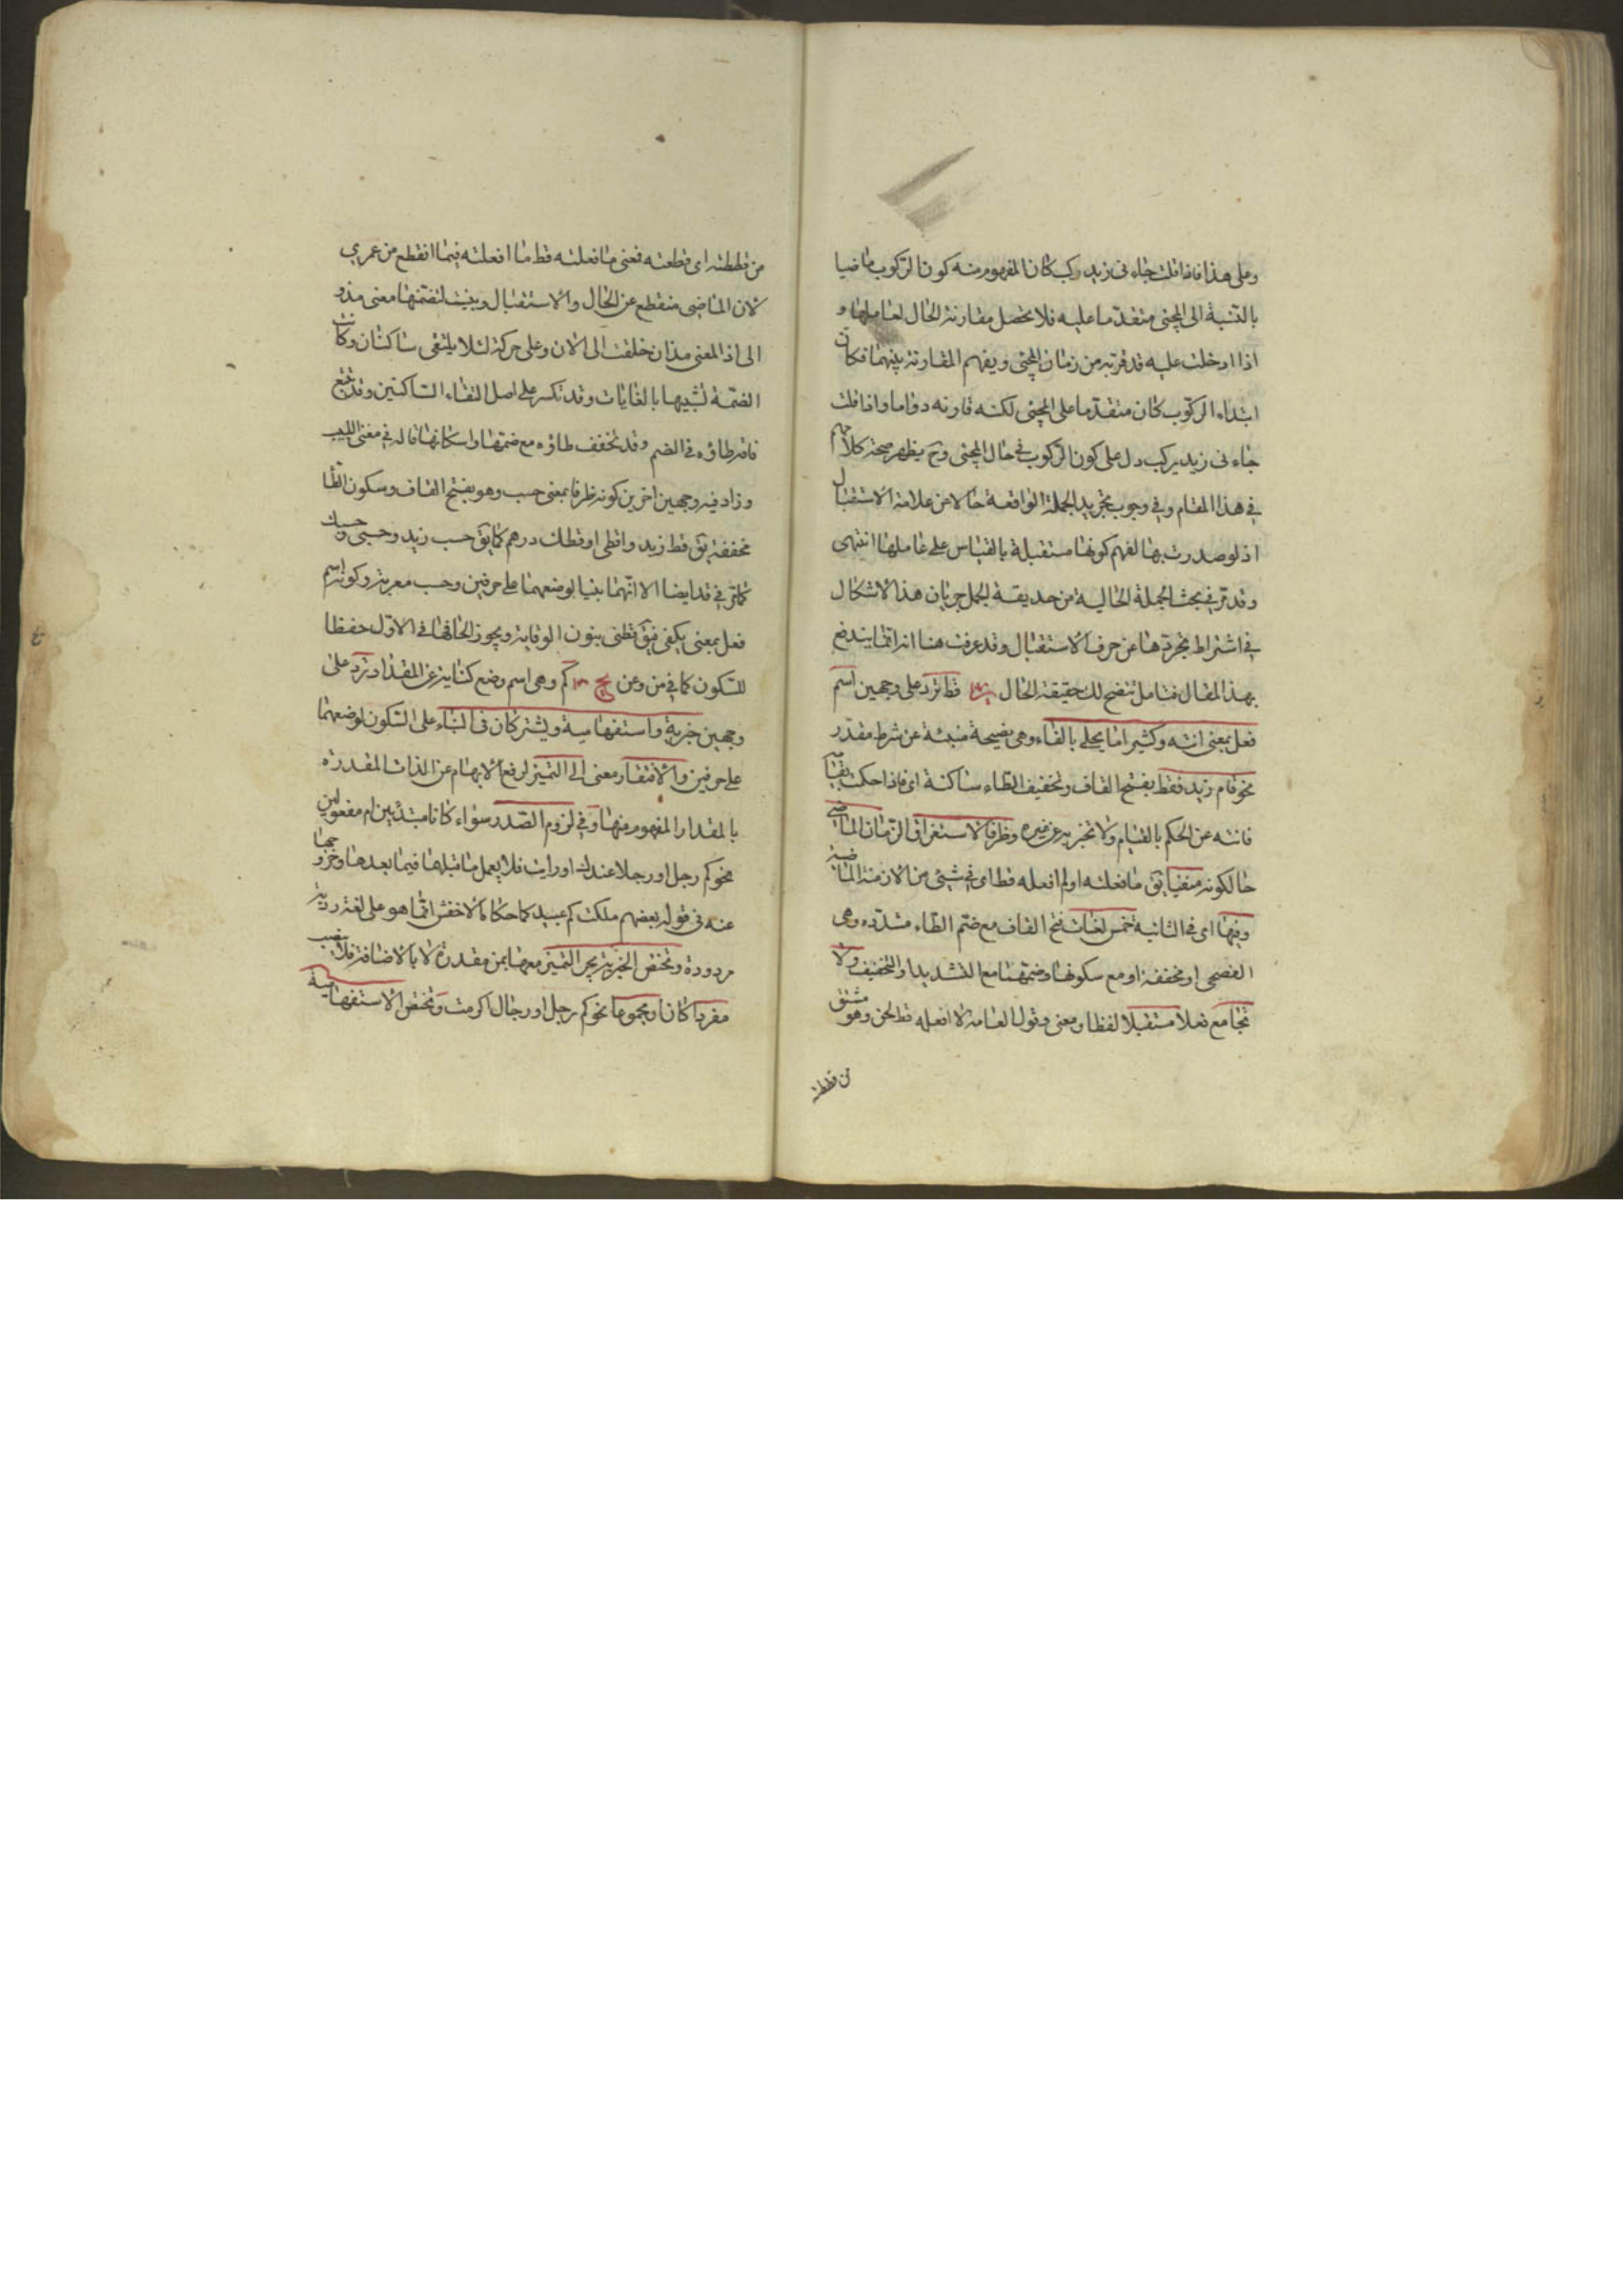 وعلى هذا فاذا قلت جاء نى زيد ركب كان المفهوم منه كون الركوب ماضيا
بالنسبة الى المجئ متقدّما عليه فلا يحصل مقارنة الحال لعاملها و
اذا ادخلت عليه قد قربته من زمان المجئ ويفهم المقارنة بينهما فكان
ابتداء الركوب كان متقدّما على المجئ لكنه قارنه دواما واذا قلت
جاء نى زيد يركب دل على كون الركوب فى حال المجئ وح يظهر صحة كلامهم
فى هذا المقام وفى وجوب تجريد الجملة الواقعة حالا عن علامة الاستقبال
اذ لو صدرت بها لفهم كونها مستقبلة بالقياس على عاملها انتهى
وقد مر فى بحث الجملة الحالية من حديقة الجمل جريان هذا الاشكال
فى اشتراط تجردها عن حرف الاستقبال وقد عرفت هنا انه انما يندفع
بهذا المقال فتامل تتضح لك حقيقة الحال قط ترد على وجهين اسم
فعل بمعنى انته وكثيرا ما يحلى بالفاء وهى فصيحة منبئة عن شرط مقدّر
نحو قام زيد فقط بفتح القاف وتخفيف الطاء ساكنة اى فاذا حكمت بقيامه
فانته عن الحكم بالقيام ولا تخبر به عن غيره وظرفا لاستغراق الزمان الماضى
حالكونه منفيا يق ما فعلته او لم افعله قط اى فى شيئ من الازمنة الماضية
وفيها اى فى الثانية خمس لغات فتح القاف مع ضم الطاء مشدّده وهى
الفصحى او مخففة او مع سكونها وضمهما مع التشديد او التخفيف ولا
تجامع فعلا مستقبلا لفظا ومعنى وقول العامة لا افعله قط لحن وهو مشتق
من قططته
من قططته اى قطعته فمعنى ما فعلته قط ما افعلته فيما انقطع من عمرى
لان الماضى منقطع عن الحال والاستقبال وبنيت لتضمنها معنى مذ و
الى اذ المعنى مذ ان خلقت الى الان وعلى حركة لئلا يلتقى ساكنان وكانت
الضمة تشبيها بالغايات وقد تكسر على اصل التقاء الساكنين وقد تتبع
قافه طاؤه فى الضم وقد تخفف طاؤه مع ضمها واسكانها قاله فى مغنى اللبيب
وزاد فيه وجهين اخرين كونه ظرفا بمعنى حسب وهو بفتح القاف وسكون الطا
مخففة يق قط زيد وقطى او قطك درهم كما يق حسب زيد وحسبى وحسبك
كما مر فى قد ايضا الا انهما بنيا لوضعهما على حرفين وحسب معربة وكونه اسم
فعل بمعنى يكفى فيق قطنى بنون الوقاية ويجوز الحاقها فى الاول حفظا
للسكون كما فى من وعن كم وهى اسم وضع كناية عن المقدار ترد على
وجهين خبرية واستفهامية ويشتركان فى البناء على السكون لوضعهما
على حرفين والافتقار معنى الى التميز لرفع الابهام عن الذات المقدرة
بالمقدار المفهوم منها وفى لزوم الصّدر سواء كانا مبتدئين ام مفعولين
نحو كم رجل او رجلا عندك او رايت فلا يعمل ما قبلها فيما بعدها وخروجها
عنه فى قول بعضهم ملكت كم عبيد كما حكاه الاخفش انما هو على لغة رديّة
مردودة وتختص الخبرية بجر التميز معها بمن مقدرة لا بالاضافة فلا ينصب
مفردا كان او مجموعا نحو كم رجل او رجال اكرمت وتختص الاستفهامية